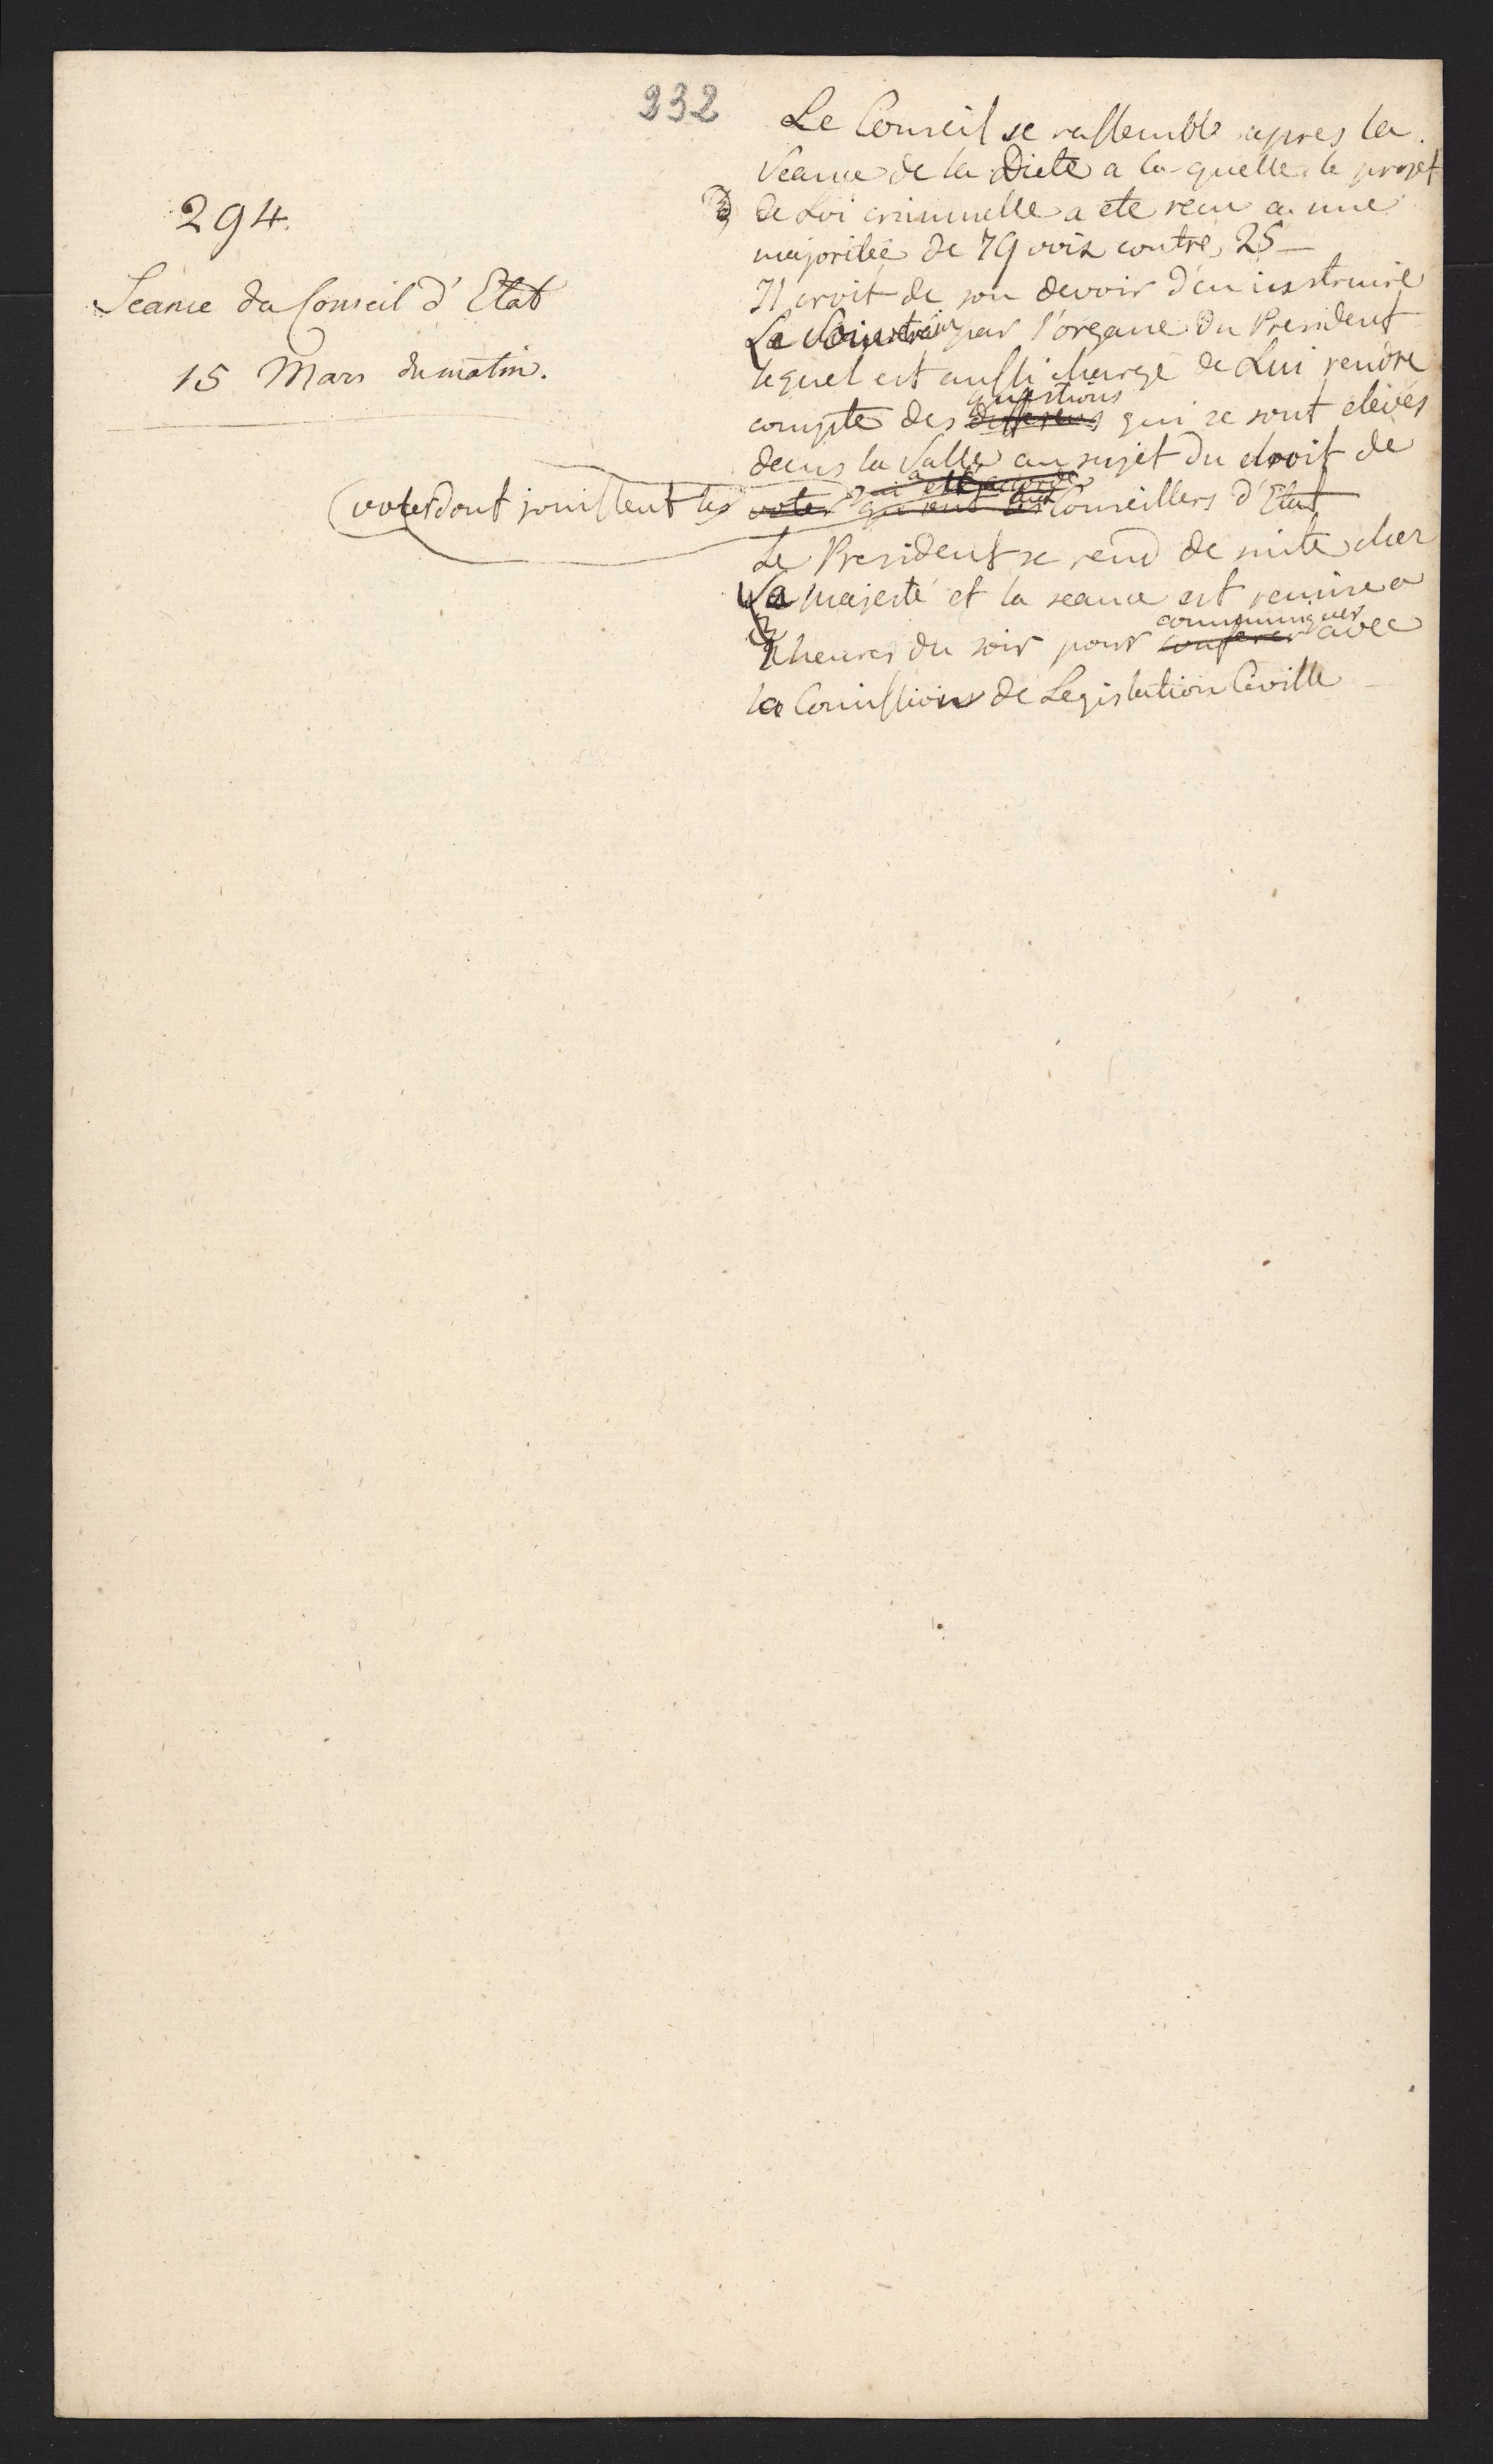 232
294.
Seance du Conseil d'Etat
15 Mars du matin.
Le Conseil se rassemble apres la
Seance de la Diete a la quelle le projet
de Loi criminelle a ete recu a une
majoritée de 79 voix contre 25 —
Il croit de son devoir d'en instruire
Le par l'organe du President
lequel est aussi chargé de Lui rendre
questions
compte des differens qui se sont elevés
dans la Salle au sujet du droit de
voter dont jouissent les
voter Conseillers d'Etat
Le President se rend de suite chez
Sa Majesté et la seance est remise a
communiquer
heures du soir pour conferer avec
la Comission de Legislation Civille —